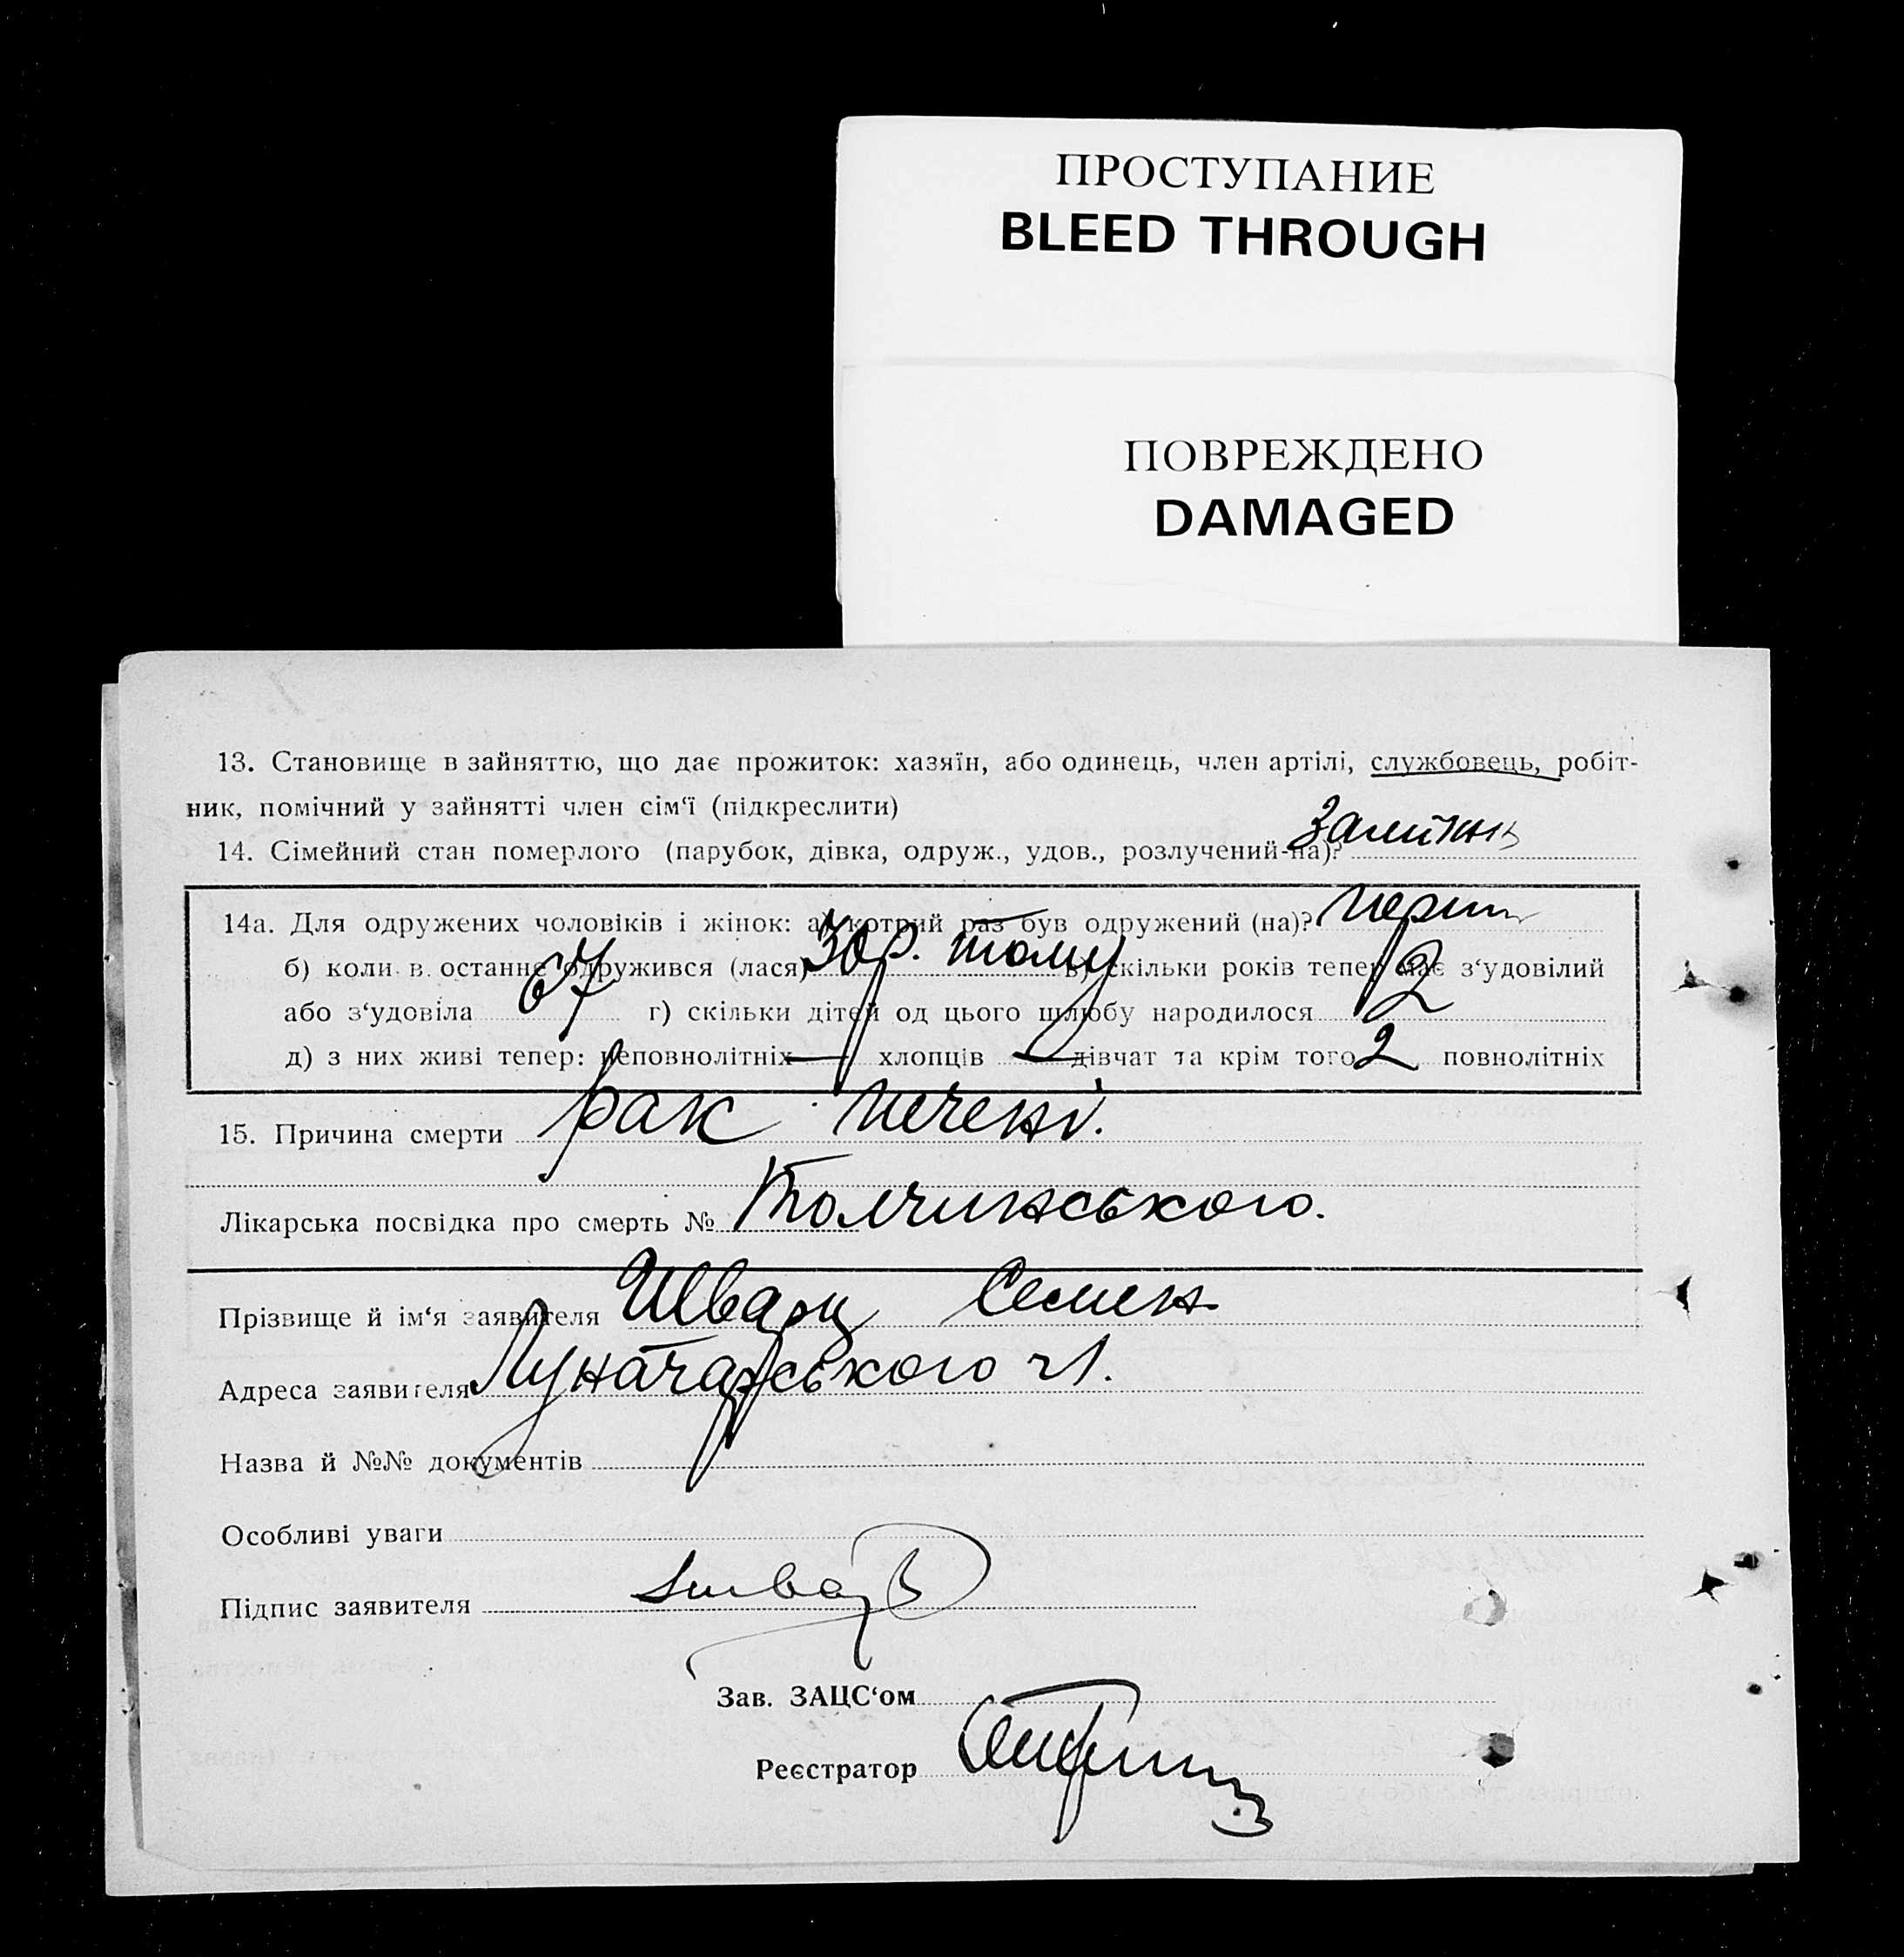 ПРОСТУПАНИЕ
BLEED THROUGH
ПОВРЕЖДЕНО
DAMAGED
13. Становище в зайняттю, що дає прожиток: хазяїн, або одинець, член артілі, службовець, робіт-
ник, помічний у зайнятті член сім‘ї (підкреслити)
14. Сімейний стан померлого (парубок, дівка, одруж., удов., розлучений-на)?
14а. Для одружених чоловіків і жінок: а) котрий раз був одружений (на)? перш
б) коли в останнє одружився (лася) 30 р. тому в) скільки років тепер має з‘удовілий
або з‘удовіла 67 г) скільки дітей од цього шлюбу народилося 2
д) з них живі тепер: неповнолітніх — хлопців — дівчат та крім того 2 повнолітніх
15. Причина смерти рак печені.
Лікарська посвідка про смерть № Толчинського.
Прізвище й ім‘я заявителя Шварц Семен
Адреса заявителя Луначарського 21.
Назва й №№ документів
Особливі уваги
Підпис заявителя
Зав. ЗАЦС‘ом
Реєстратор